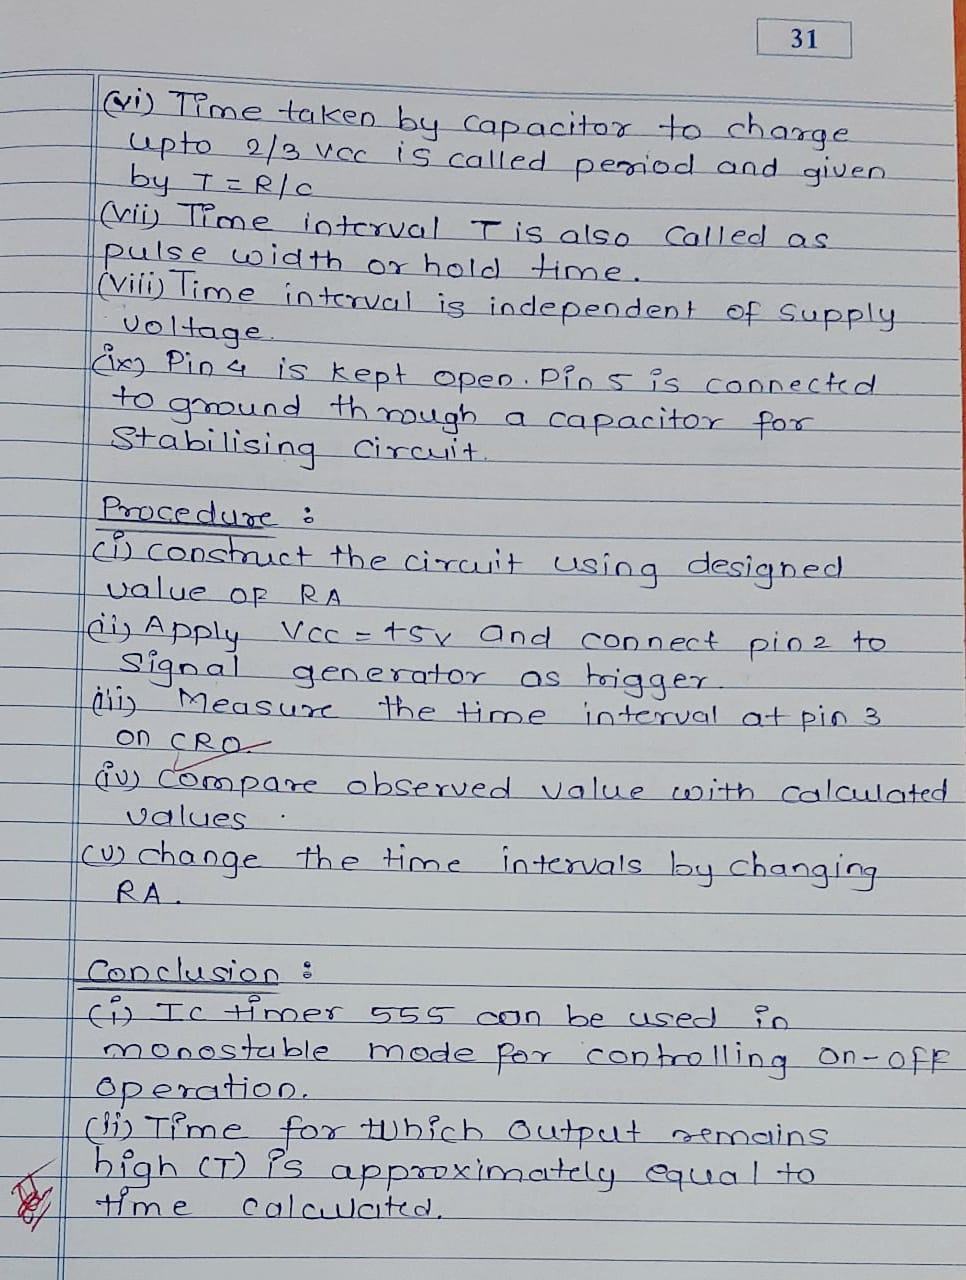 31
(vi) Time taken by capacitor to charge
upto 2/3 Vcc is called period and given
by T = R/C
(vii) Time interval T is also called as
pulse width or hold time.
(viii) Time interval is independent of supply
voltage.
(ix) Pin 4 is kept open. Pin 5 is connected
to ground through a capacitor for
stabilising circuit.
Procedure :
(i) construct the circuit using designed
value of RA
(ii) Apply Vcc = +5v and connect pin 2 to
signal generator as trigger.
(iii) Measure the time interval at pin 3
on CRO.
(iv) compare observed value with calculated
values.
(v) change the time intervals by changing
RA.
Conclusion :
(i) IC timer 555 can be used in
monostable mode for controlling on-off
operation.
(ii) Time for which output remains
high (T) is approximately equal to
time calculated.